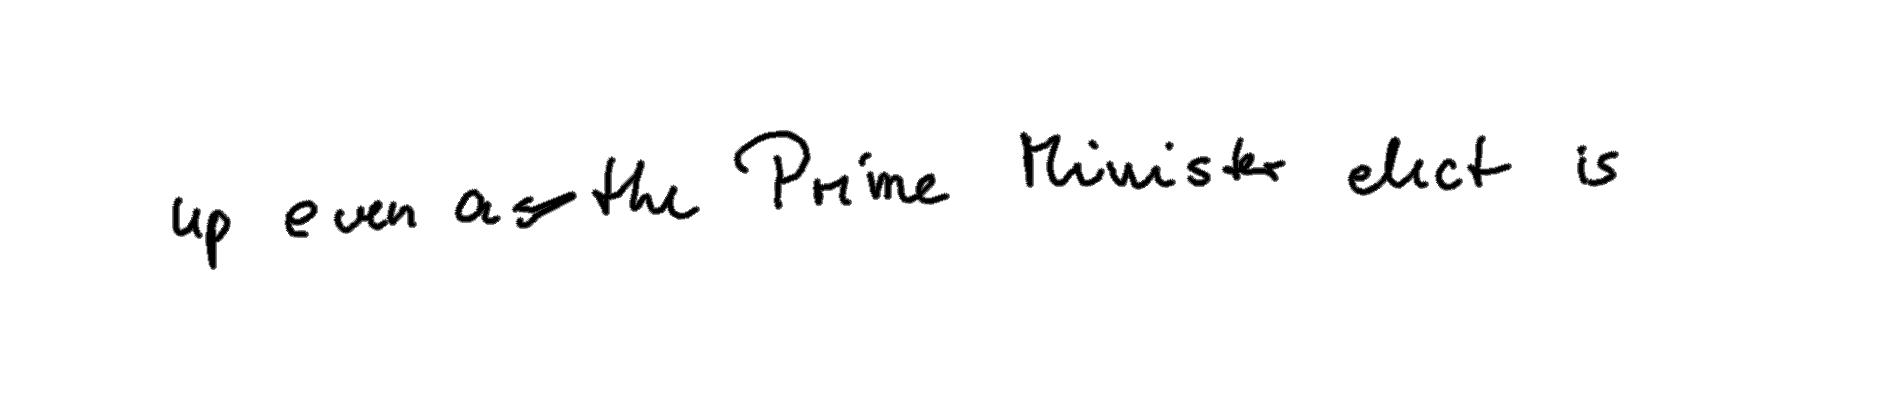 up even as the Prime Minister elect is